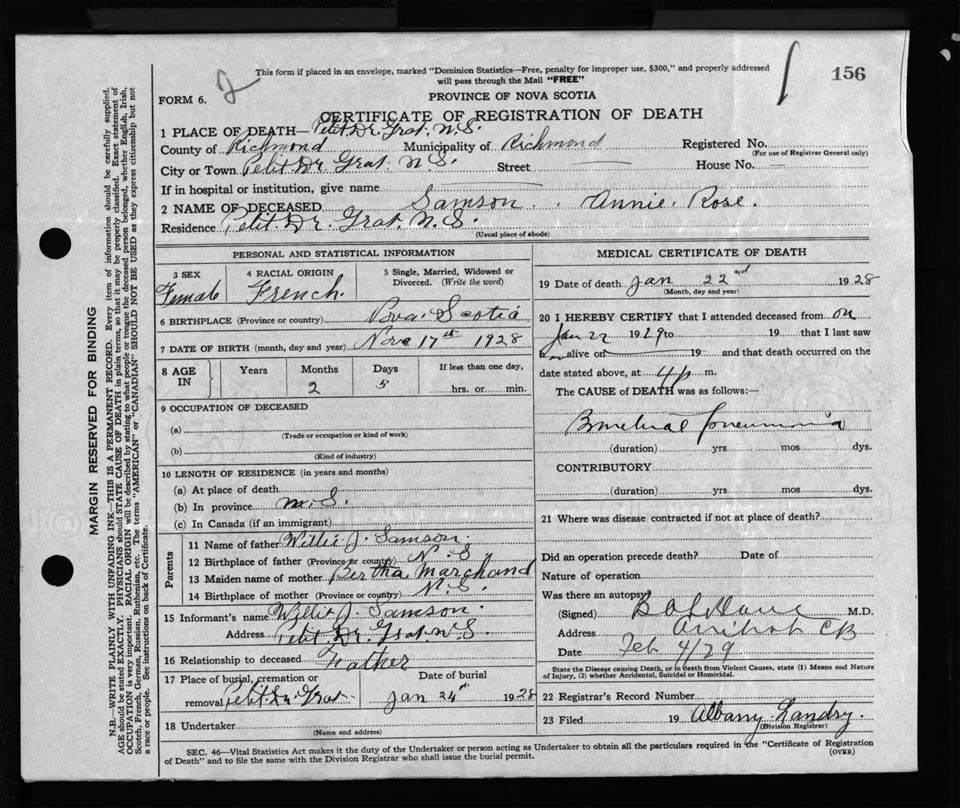 This form if placed in an envelope, marked "Dominion Statistics—Free, penalty for improper use, $300," and properly addressed
will pass through the Mail "FREE"
2
156
FORM 6.
PROVINCE OF NOVA SCOTIA
CERTIFICATE OF REGISTRATION OF DEATH
1 PLACE OF DEATH— Petit Dr. Grat. N.S.
County of Richmond Municipality of Richmond Registered No.
(For use of Registrar General only)
City or Town Petit Dr Grat N.S. Street — House No. —
If in hospital or institution, give name
2 NAME OF DECEASED Samson . . Annie. Rose.
Residence Petit. Dr. Grat. N.S.
(Usual place of abode)
PERSONAL AND STATISTICAL INFORMATION
3 SEX Female
4 RACIAL ORIGIN French.
5 Single, Married, Widowed or Divorced. (Write the word)
6 BIRTHPLACE (Province or country) Nova Scotia
7 DATE OF BIRTH (month, day and year) Nov 17th 1928
8 AGE IN Years Months 2 Days 5 If less than one day, hrs. or min.
9 OCCUPATION OF DECEASED
(a)
(Trade or occupation or kind of work)
(b)
(Kind of industry)
10 LENGTH OF RESIDENCE (in years and months)
(a) At place of death
(b) In province N.S.
(c) In Canada (if an immigrant)
Parents
11 Name of father Willie J. Samson.
12 Birthplace of father (Province or country) N.S.
13 Maiden name of mother Bertha Marchand
14 Birthplace of mother (Province or country) N.S.
15 Informant's name Willie J. Samson.
Address Petit Dr. Grat N.S.
16 Relationship to deceased Father
17 Place of burial, cremation or removal Petit Dr. Grat Date of burial Jan 24th 1928
18 Undertaker
(Name and address)
MEDICAL CERTIFICATE OF DEATH
19 Date of death Jan 22nd 1928
(Month, day and year)
20 I HEREBY CERTIFY that I attended deceased from on
Jan 22 1929 to 19 that I last saw
alive on 19 and that death occurred on the
date stated above, at 4 p m.
The CAUSE of DEATH was as follows:—
Bronchial pneumonia
(duration) yrs mos dys.
CONTRIBUTORY
(duration) yrs mos dys.
21 Where was disease contracted if not at place of death?
Did an operation precede death? Date of
Nature of operation
Was there an autopsy
(Signed) M.D.
Address Arichat CB
Date Feb 4/29
State the Disease causing Death, or in death from Violent Causes, state (1) Means and Nature
of Injury, (2) whether Accidental, Suicidal or Homicidal.
22 Registrar's Record Number
23 Filed 19 Albany Landry.
(Division Registrar)
SEC. 46—Vital Statistics Act makes it the duty of the Undertaker or person acting as Undertaker to obtain all the particulars required in the "Certificate of Registration
of Death" and to file the same with the Division Registrar who shall issue the burial permit. (OVER)
MARGIN RESERVED FOR BINDING
N.B.—WRITE PLAINLY WITH UNFADING INK—THIS IS A PERMANENT RECORD. Every item of information should be carefully supplied.
AGE should be stated EXACTLY. PHYSICIANS should STATE CAUSE OF DEATH in plain terms, so that it may be properly classified. Exact statement of
OCCUPATION is very important. RACIAL ORIGIN will be described by stating to what people or tongue the deceased person belonged, whether English, Irish,
Scotch, French, German, Russian, Ruthenian, etc. The terms "AMERICAN" or "CANADIAN" SHOULD NOT BE USED as they express citizenship but not
a race or people. See instructions on back of Certificate.